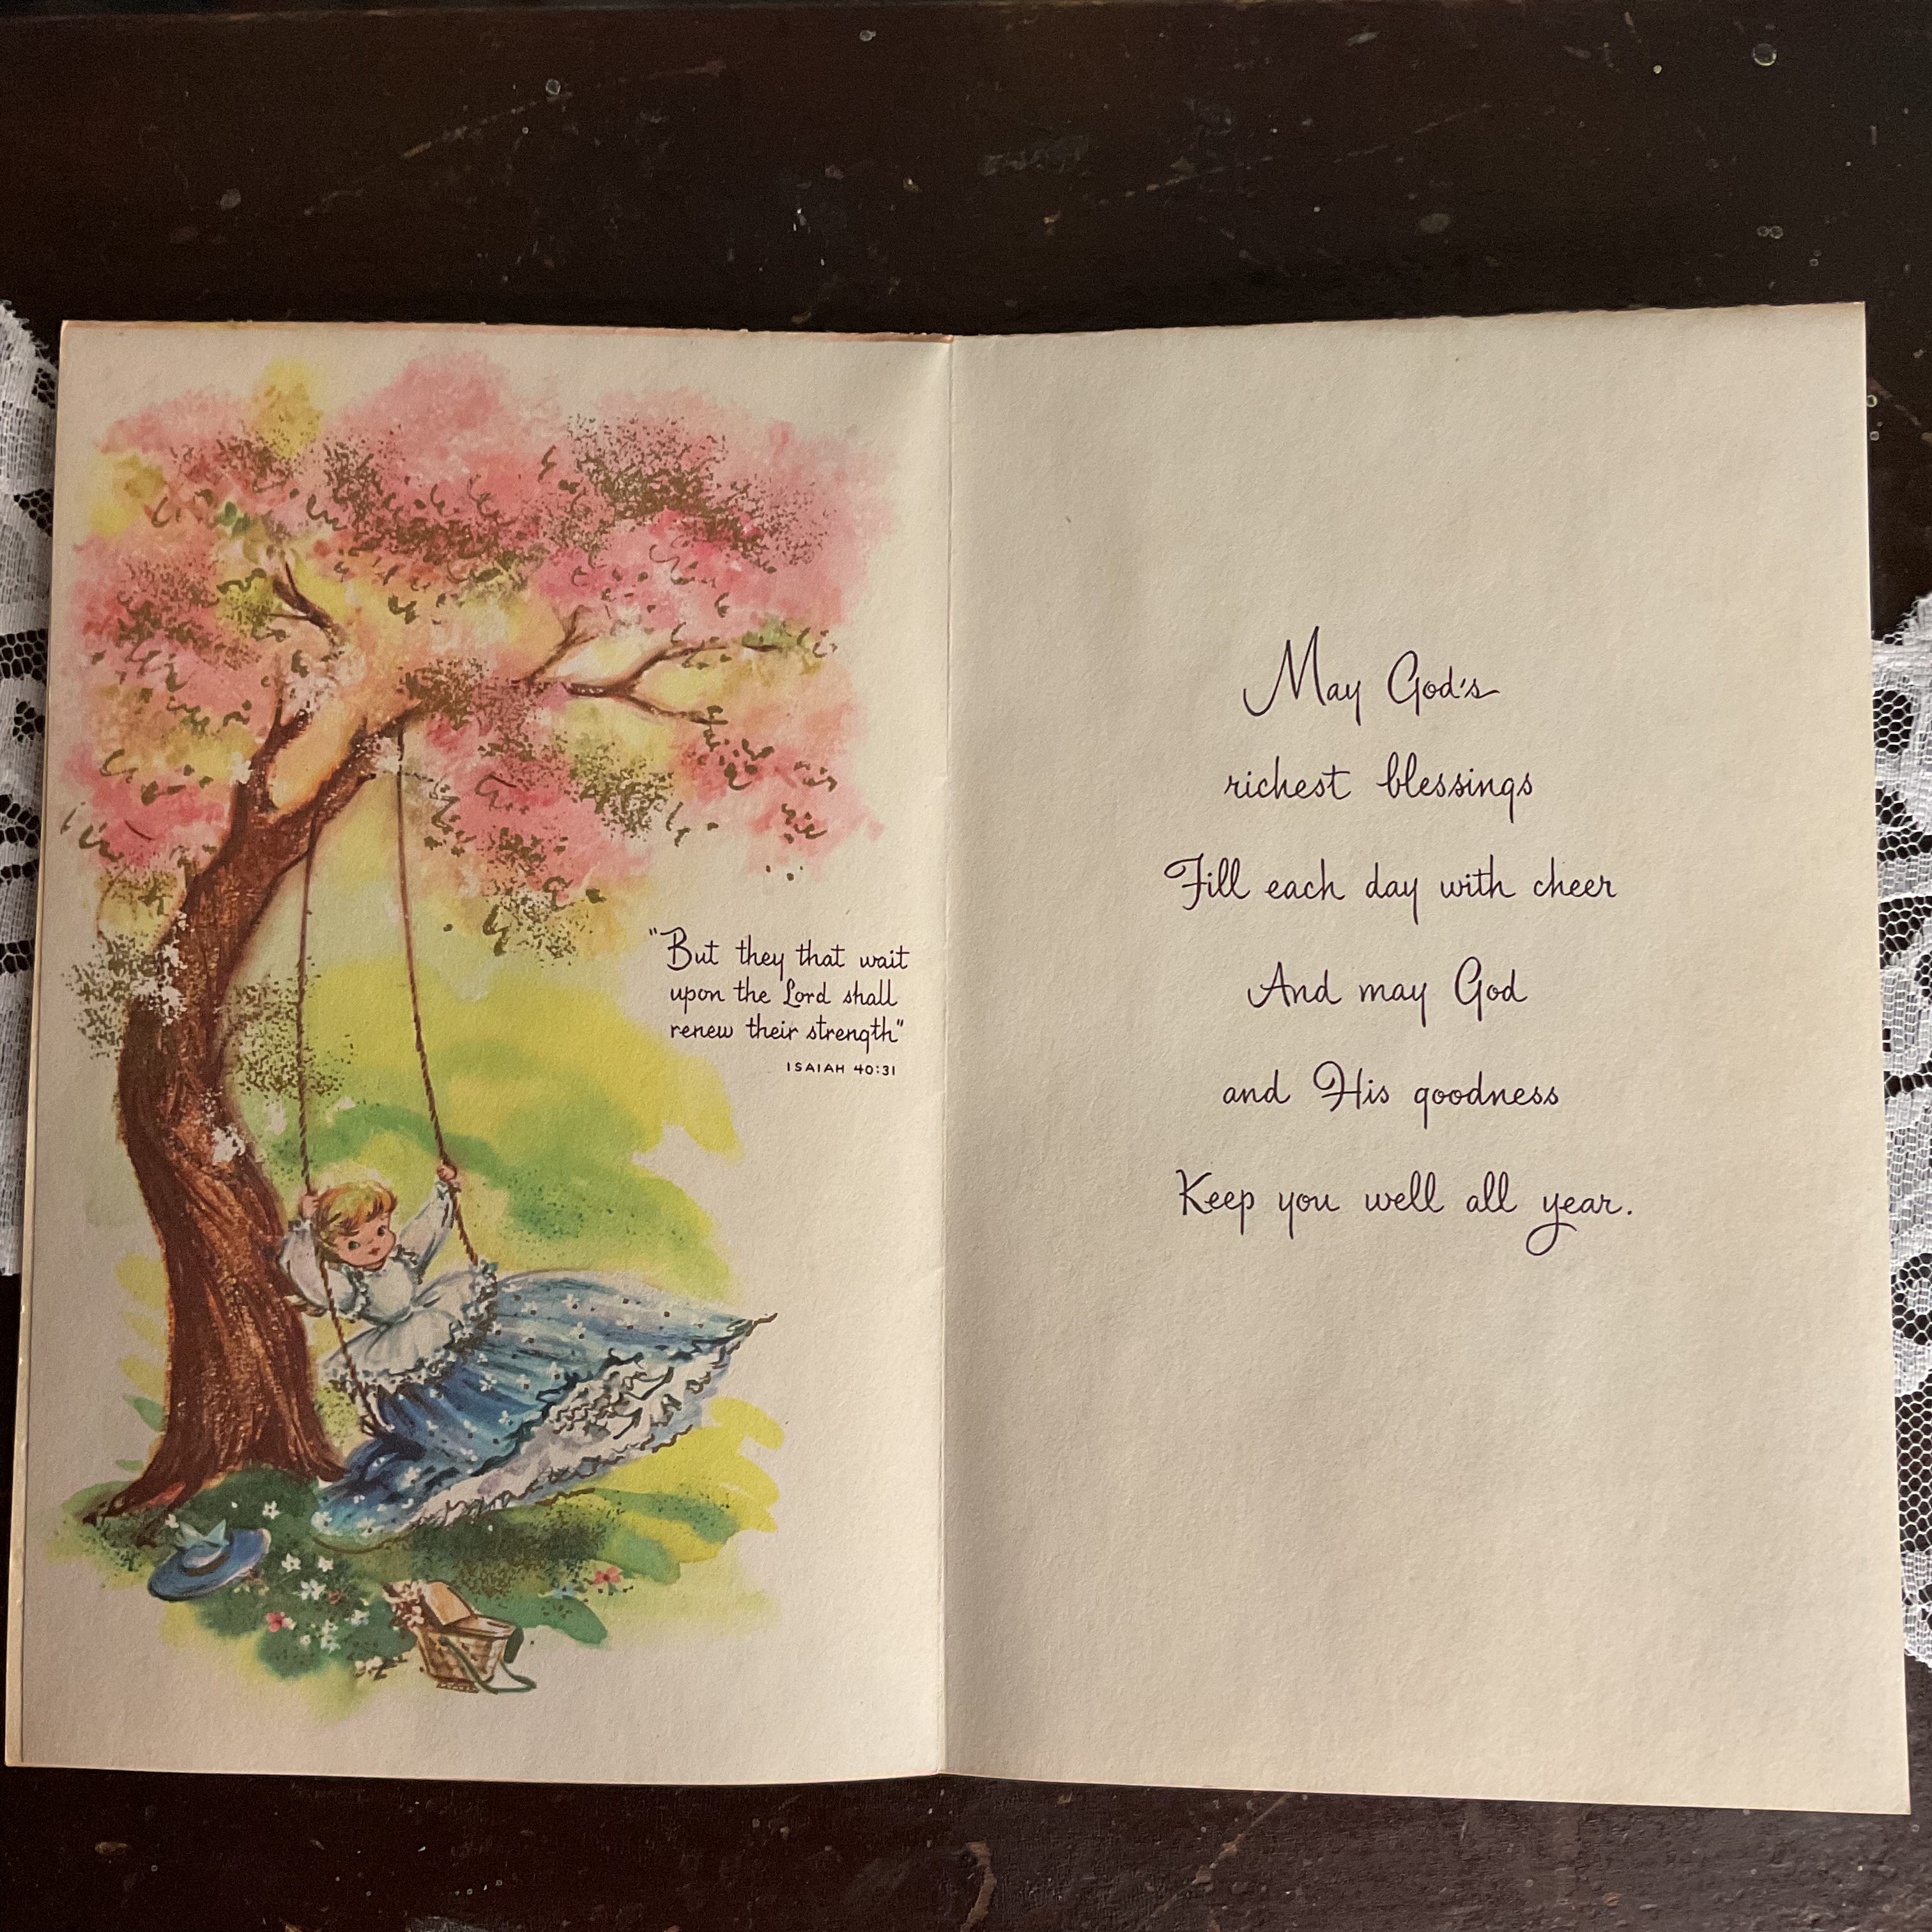 "But they that wait
upon the Lord shall
renew their strength"
ISAIAH 40:31
May God's
richest blessings
Fill each day with cheer
And may God
and His goodness
Keep you well all year.